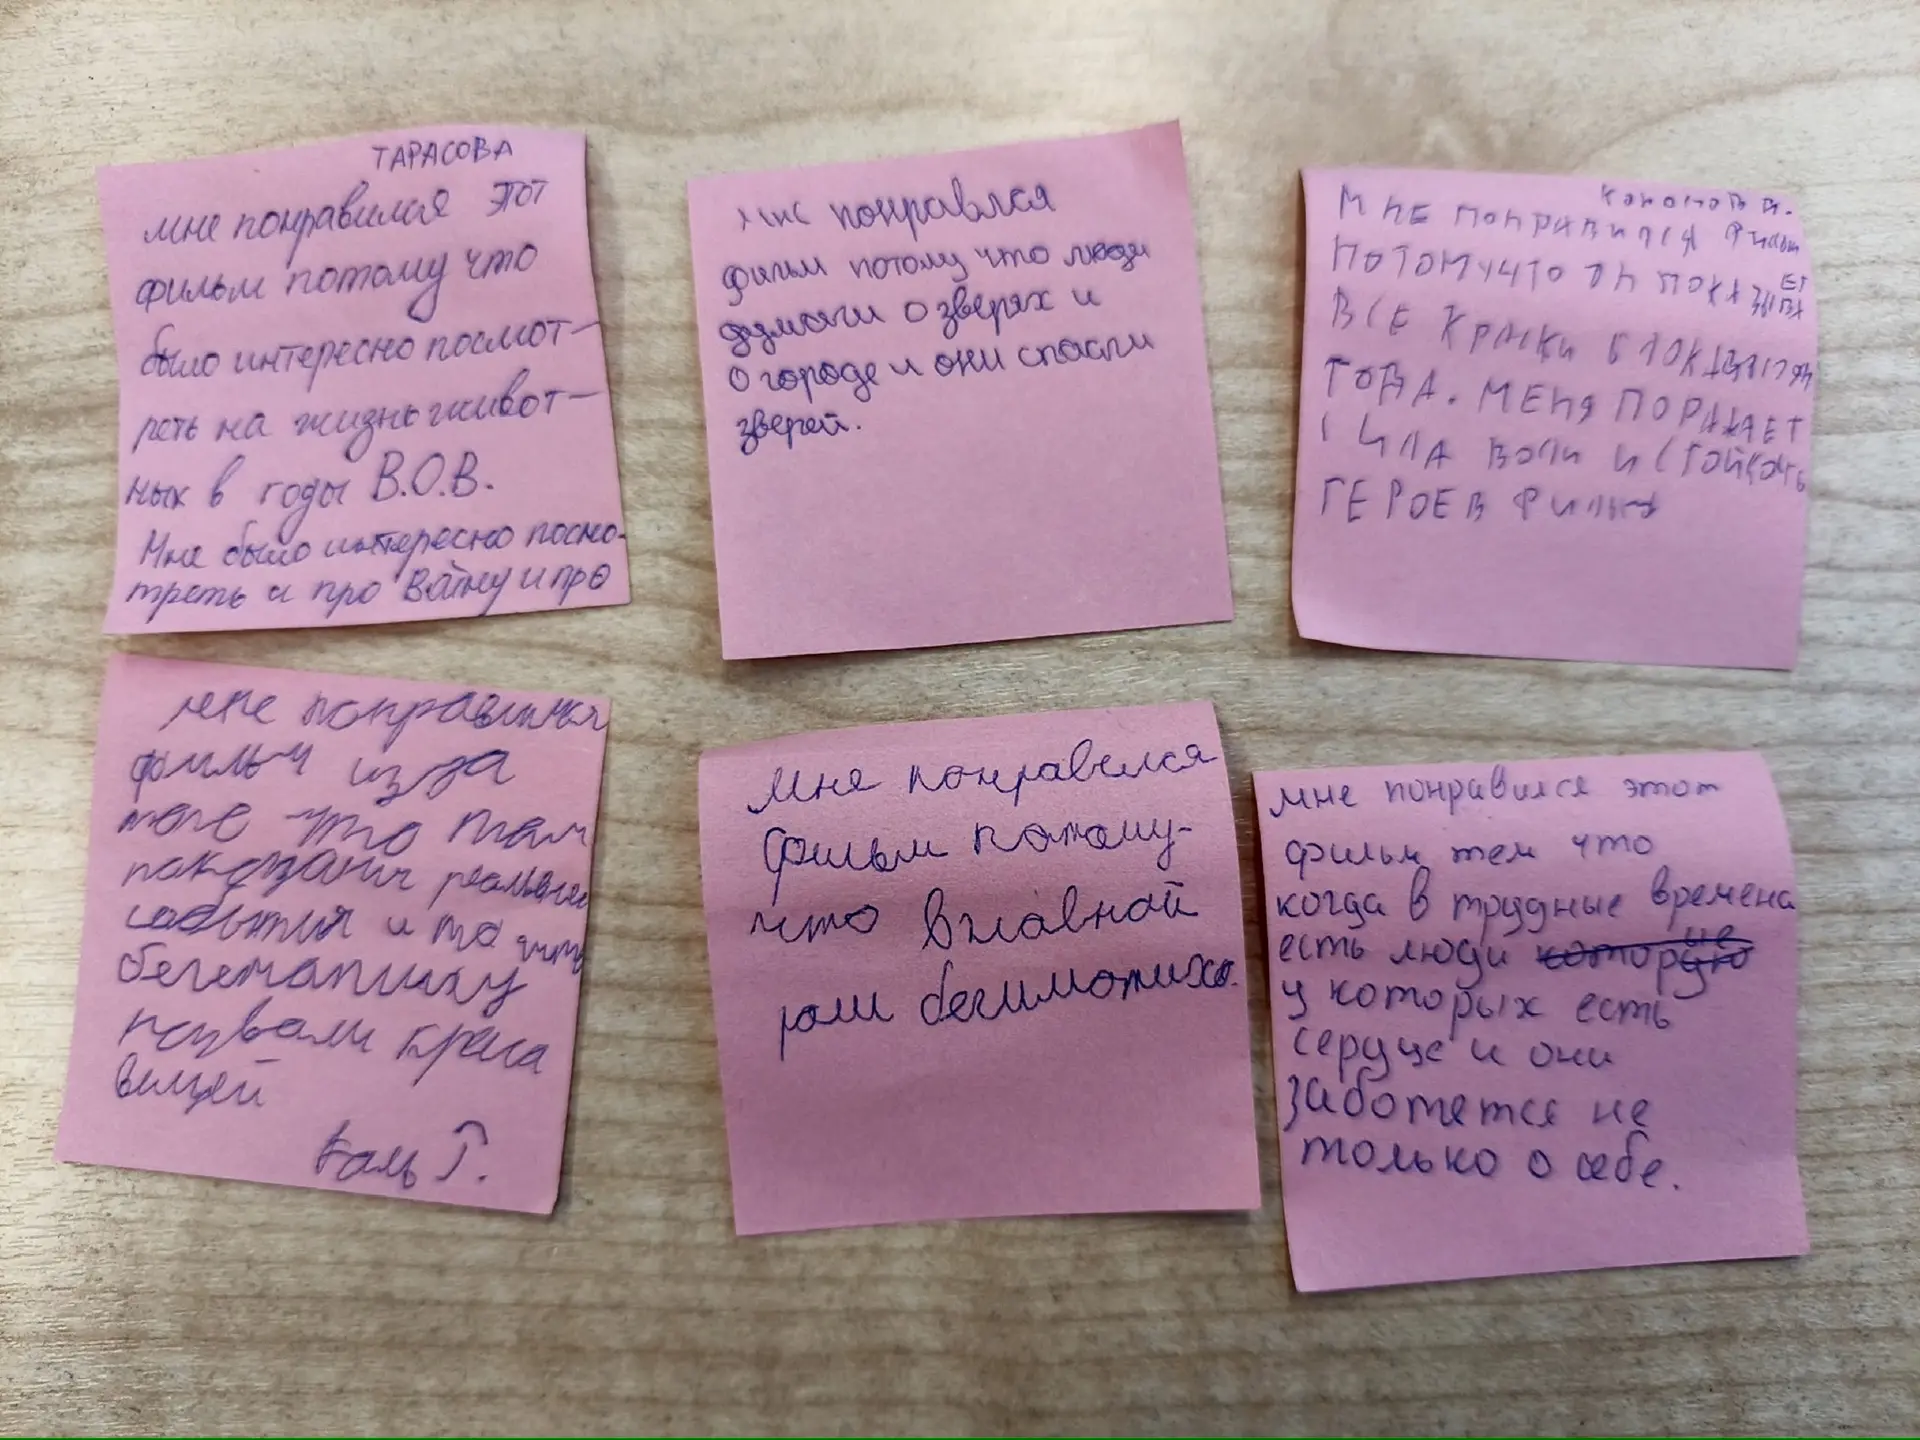 ТАРАСОВА
мне понравился этот
фильм потому что
было интересно посмот-
реть на жизнь живот-
ных в годы В.О.В.
Мне было интересно посмо-
треть и про вайну и про
Мне понравлся
фильм потому что люди
думали о зверях и
о городе и они спасли
зверей.
МНЕ ПОНРАВИЛСЯ ФИЛЬМ
ПОТОМУЧТО ОН ПОКАЗЫВАЕТ
ВСЕ КРАСКИ
ГОДА. МЕНЯ ПОРАЖАЕТ
СИЛА ВОЛИ И СТОЙКОСТЬ
ГЕРОЕВ ФИЛЬМА
мне понравился
фильм из за
того что там
показани реальные
события и то что
бегемотиху
назвали краса
вицей
Мня понравелся
фильм потому-
что вглавной
роли бегимотиха.
мне понравился этот
фильм тем что
когда в трудные времена
есть люди
у которых есть
сердце и они
заботятся не
только о себе.